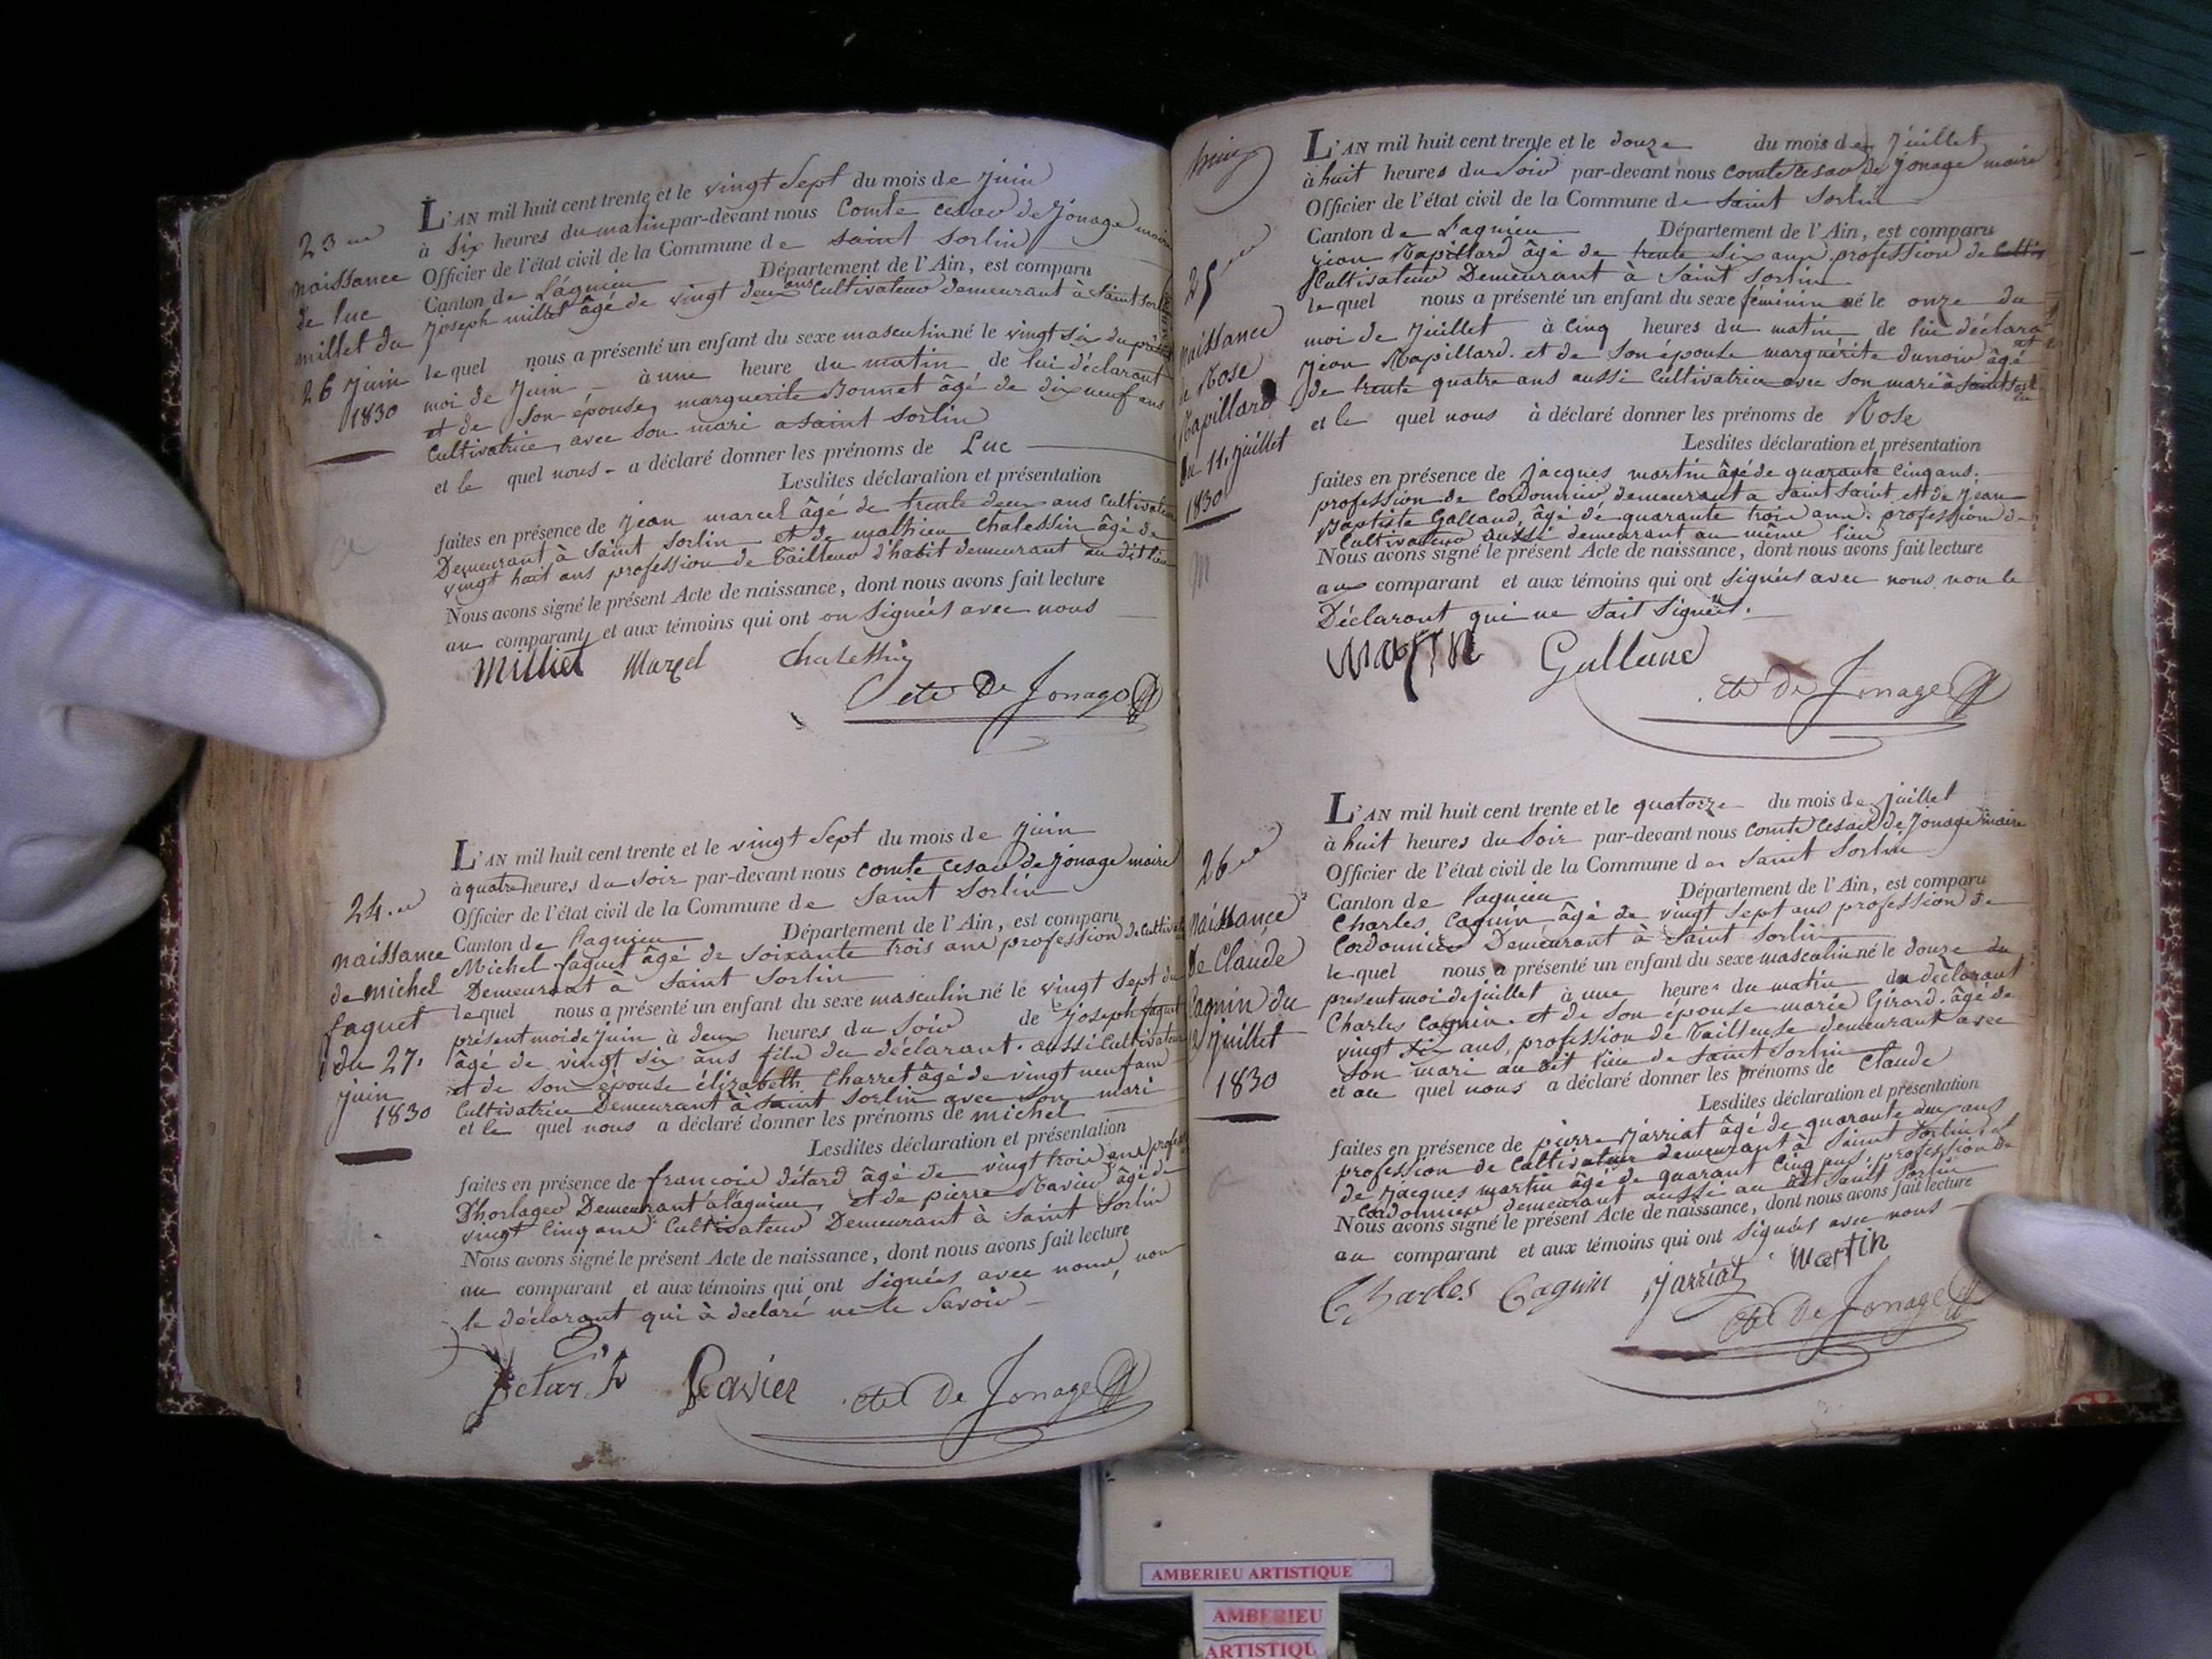 23me
naissance
de luc
millet du
26 juin
1830
L'AN mil huit cent trente et le vingt Sept du mois de juin
à Six heures du matin par-devant nous Comte cesar de Jonage maire
Officier de l'état civil de la Commune de saint Sorlin
Canton de Lagnieu Département de l'Ain, est comparu
joseph millet âgé de vingt deux ans Cultivateur demeurant à Saint Sorlin
lequel nous a présenté un enfant du sexe masculin né le vingt six du présent
moi de juin à une heure du matin de lui déclarant
et de Son épouse marguerite Bonnet âgé de dix neuf ans
Cultivatrice avec Son mari a saint Sorlin
et le quel nous a déclaré donner les prénoms de Luc
Lesdites déclaration et présentation
faites en présence de jean marcel âgé de trente deux ans Cultivateur
Demeurant à Saint Sorlin et de mathieu Chalessin âgé de
vingt huit ans profession de Tailleur d'habit demeurant au dit lieu
Nous avons signé le présent Acte de naissance, dont nous avons fait lecture
au comparant et aux témoins qui ont on Signées avec nous
Milliet Marcel Chalessin
Cte De Jonage
24.me
naissance
de michel
faquet
du 27.
juin
1830
L'AN mil huit cent trente et le vingt Sept du mois de juin
à quatre heures du Soir par-devant nous comte cesar de jonage maire
Officier de l'état civil de la Commune de Saint Sorlin
Canton de Lagnieu Département de l'Ain, est comparu
Michel faquet âgé de Soixante trois ans profession de Cultivat
Demeurant à Saint Sorlin
lequel nous a présenté un enfant du sexe masculin né le vingt Sept du
présent moi de juin à deux heures du Soir de joseph faquet
âgé de vingt Six ans fils du déclarant. aussi Cultivateur
et de Son épouse élizabeth Charret âgé de vingt neuf ans
Cultivatrice Demeurant à Saint Sorlin avec Son mari
et le quel nous a déclaré donner les prénoms de michel
Lesdites déclaration et présentation
faites en présence de françois détard âgé de vingt trois ans profes
D'horlager Demeurant a lagnieu et de pierre Ravier âgé de
vingt Cinq ans Cultivateur Demeurant à Saint Sorlin
Nous avons signé le présent Acte de naissance, dont nous avons fait lecture
au comparant et aux témoins qui ont Signées avec nous, non
le déclarant qui à déclaré ne le Savoir
Detard Ravier Cte De Jonage
25me
naissance
de Rose
Rapillard
du 11. juillet
1830
L'AN mil huit cent trente et le douze du mois de juillet
à huit heures du Soir par-devant nous comte cesar de jonage maire
Officier de l'état civil de la Commune de Saint Sorlin
Canton de Lagnieu Département de l'Ain, est comparu
jean Rapillard âgé de trente Six ans profession de Cultiv
Cultivateur Demeurant à Saint Sorlin
lequel nous a présenté un enfant du sexe féminin né le onze du
moi de juillet à Cinq heures du matin de lui déclarant
jean Rapillard. et de Son épouse marguérite dunoir âgé
de trente quatre ans aussi Cultivatrice avec Son mari à Saint Sorlin
et le quel nous à déclaré donner les prénoms de Rose
Lesdites déclaration et présentation
faites en présence de jacques martin âgé de quarante Cinq ans.
profession de Cordonnier demeurant a Saint Saint et de jean
Baptiste Galland, âgé de quarante trois ans. profession de
Cultivateur aussi demeurant au même lieu
Nous avons signé le présent Acte de naissance, dont nous avons fait lecture
au comparant et aux témoins qui ont Signées avec nous non le
Déclarant qui ne Sait Signées.
Martin Galland
Cte De Jonage
26me
Naissance
de Claude
Cagnin du
12 juillet
1830
L'AN mil huit cent trente et le quatorze du mois de juillet
à huit heures du Soir par-devant nous comte cesar de jonage maire
Officier de l'état civil de la Commune de Saint Sorlin
Canton de lagnieu Département de l'Ain, est comparu
Charles Cagnin âgé de vingt Sept ans profession de
Cordonnier Demeurant à Saint Sorlin
lequel nous a présenté un enfant du sexe masculin né le douze du
present moi de juillet à une heures du matin du déclarant
Charles Cagnin. et de Son épouse marie Girard. âgé de
vingt Six ans, profession de Tailleuse demeurant avec
Son mari au dit lieu de Saint Sorlin
et au quel nous a déclaré donner les prénoms de Claude
Lesdites déclaration et présentation
faites en présence de pierre jarriat âgé de quarante deux ans
profession de Cultivateur demeurant à Saint Sorlin, et
de jacques martin âgé de quarant Cinq ans, profession de
Cordonnier demeurant aussi au dit Saint Sorlin
Nous avons signé le présent Acte de naissance, dont nous avons fait lecture
au comparant et aux témoins qui ont Signées avec nous
Charles Cagnin Jarriat Martin
Cte De Jonage
AMBERIEU ARTISTIQUE
AMBERIEU
ARTISTIQU